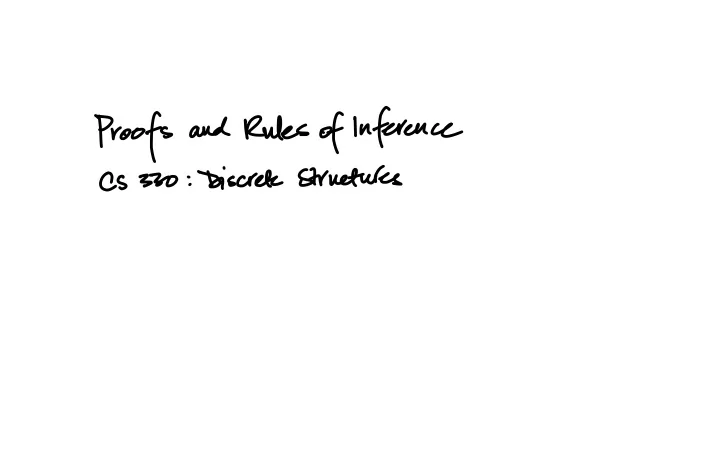 Proofs and Rules of Inference
CS 330: Discrete Structures